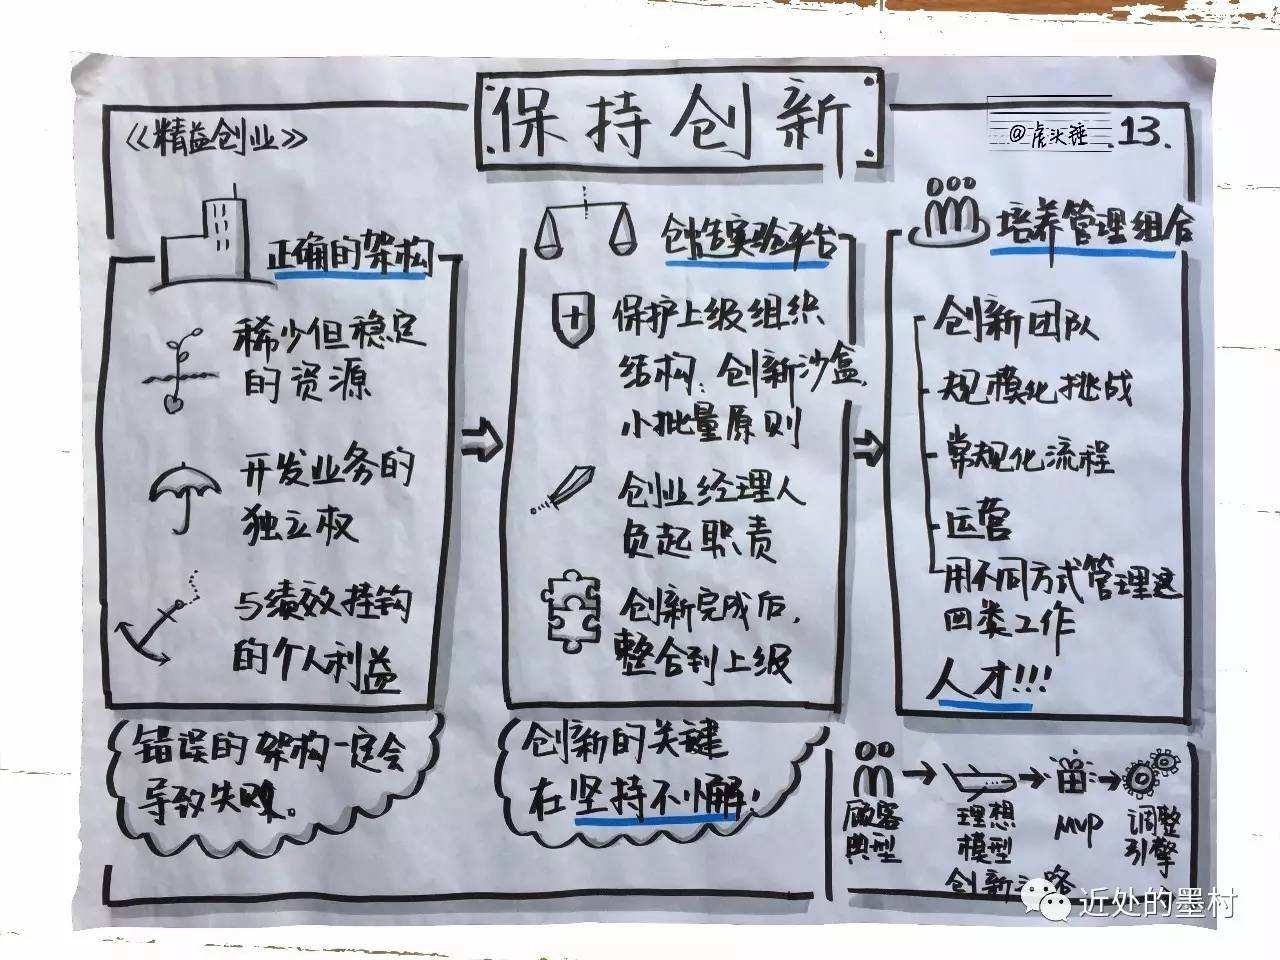 保持创新
《精益创业》
@虎头锤
13.
正确的架构
稀少但稳定
的资源
开发业务的
独立权
与绩效挂钩
的个人利益
错误的架构一定会
导致失败。
创造实验平台
保护上级组织
结构：创新沙盒，
小批量原则
创业经理人
负起职责
创新完成后，
整合到上级
创新的关键
在坚持不懈！
培养管理组合
创新团队
规模化挑战
常规化流程
运营
用不同方式管理这
四类工作
人才!!!
顾客
典型
理想
模型
MVP
调整
引擎
创新
近处的墨村